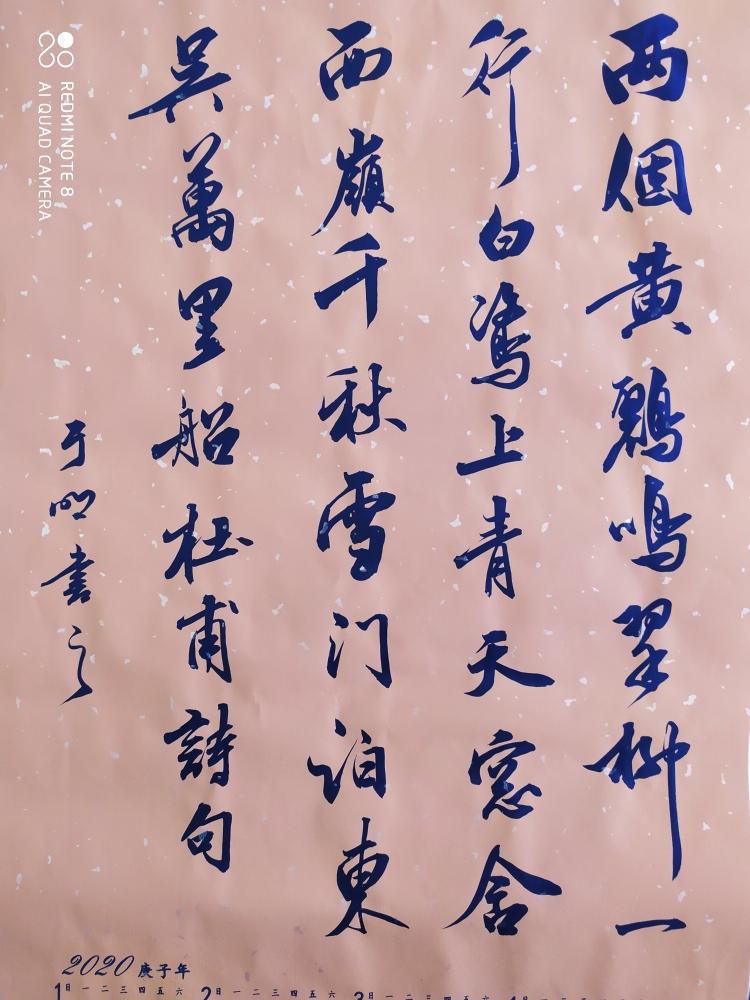 两個黄鸝鳴翠柳一
行白鷺上青天窓含
西嶺千秋雪门泊東
吳萬里船杜甫詩句
于明書之
REDMI NOTE 8
AI QUAD CAMERA
2020 庚子年
1 日 一 二 三 四 五 六 2 日 一 二 三 四 五 六 3 日 一 二 三 四 五 六